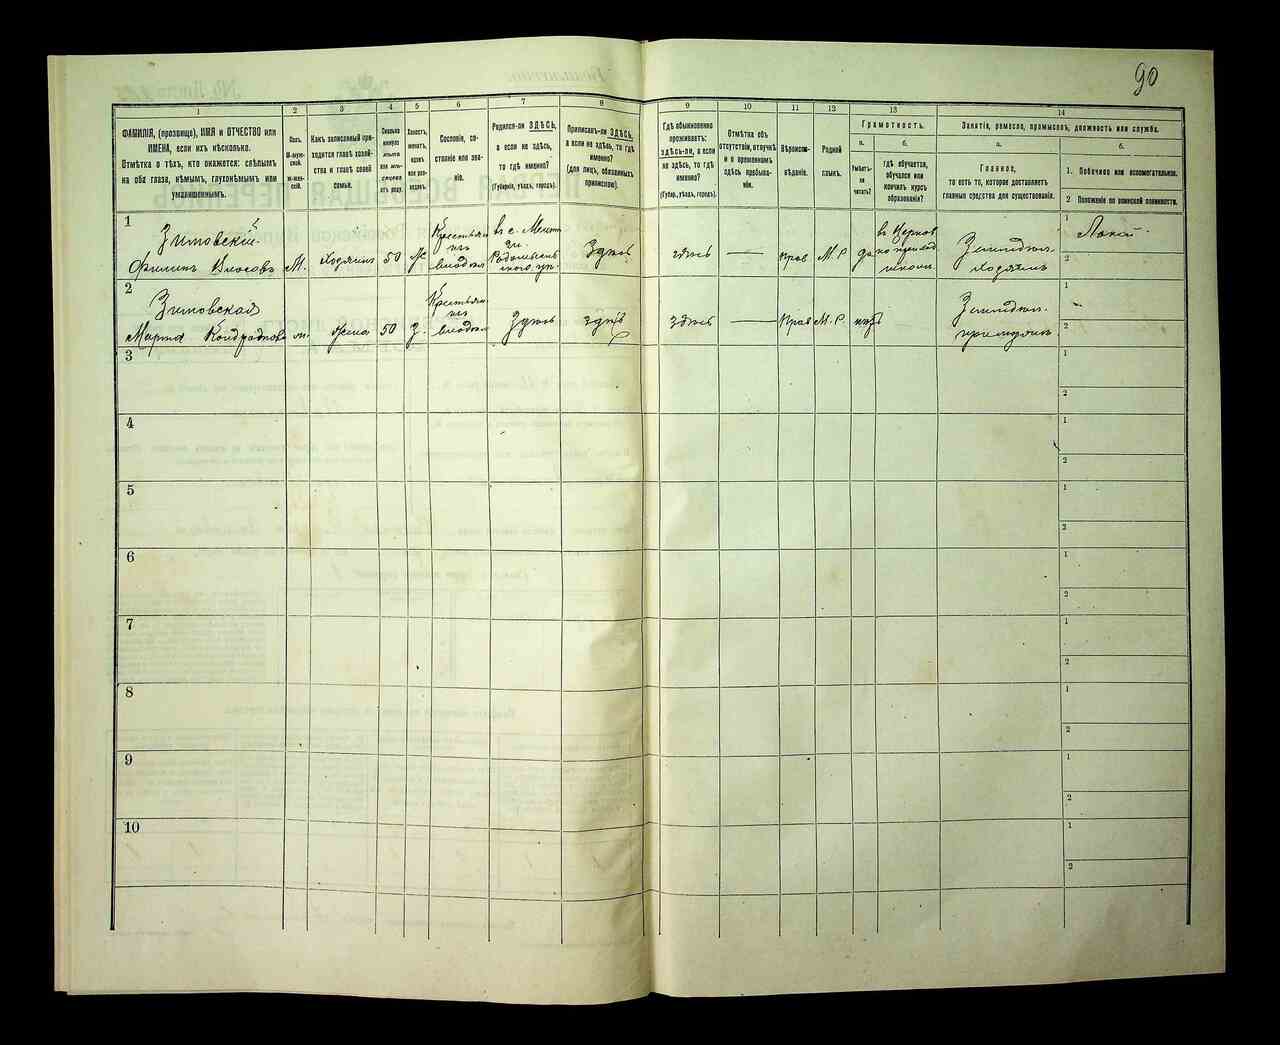 90
1
2
3
4
5
6
7
8
9
10
11
12
13
14
ФАМИЛІЯ, (прозвище), ИМЯ и ОТЧЕСТВО или
ИМЕНА, если ихъ нѣсколько.
Отмѣтка о тѣхъ, кто окажется: слѣпымъ
на оба глаза, нѣмымъ, глухонѣмымъ или
умалишеннымъ.
Полъ.
М-муж-
ской.
Ж-жен-
скій.
Какъ записанный при-
ходится главѣ хозяй-
ства и главѣ своей
семьи.
Сколько
минуло
лѣтъ
или мѣ-
сяцевъ
отъ роду.
Холостъ,
женатъ,
вдовъ
или раз-
веденъ.
Сословіе, со-
стояніе или зва-
ніе.
Родился-ли ЗДѢСЬ,
а если не здѣсь,
то гдѣ именно?
(Губернія, уѣздъ, городъ).
Приписанъ-ли ЗДѢСЬ,
а если не здѣсь, то гдѣ
именно?
(для лицъ, обязанныхъ
припискою).
Гдѣ обыкновенно
проживаетъ:
здѣсь-ли, а если
не здѣсь, то гдѣ
именно?
(Губер., уѣздъ, городъ).
Отмѣтка объ
отсутствіи, отлучкѣ
и о временномъ
здѣсь пребыва-
ніи.
Вѣроиспо-
вѣданіе.
Родной
языкъ.
Грамотность.
а.
Умѣетъ-
ли
читать?
б.
гдѣ обучается,
обучался или
кончилъ курсъ
образованія?
Занятіе, ремесло, промыселъ, должность или служба.
а.
Главное,
то есть то, которое доставляетъ
главныя средства для существованія.
б.
1. Побочное или вспомогательное.
2. Положеніе по воинской повинности.
1
Зитовскій
Филипъ Власовъ
М.
Хозяинъ
50
Ж
Крестьян
изъ
владѣл
въ с.
Здѣсь
здѣсь
—
прав
М. Р.
да
въ Церков
но приход
школѣ
Земледѣл.
хозяинъ
1
2
2
Зитовская
Марта Кондратова
ж.
жена
50
З.
Крестьян
изъ
владѣл
Здѣсь
здѣсь
здѣсь
—
Прав
М. Р.
нѣтъ
Земледѣл.
при мужѣ
1
2
3
1
2
4
1
2
5
1
2
6
1
2
7
1
2
8
1
2
9
1
2
10
1
2